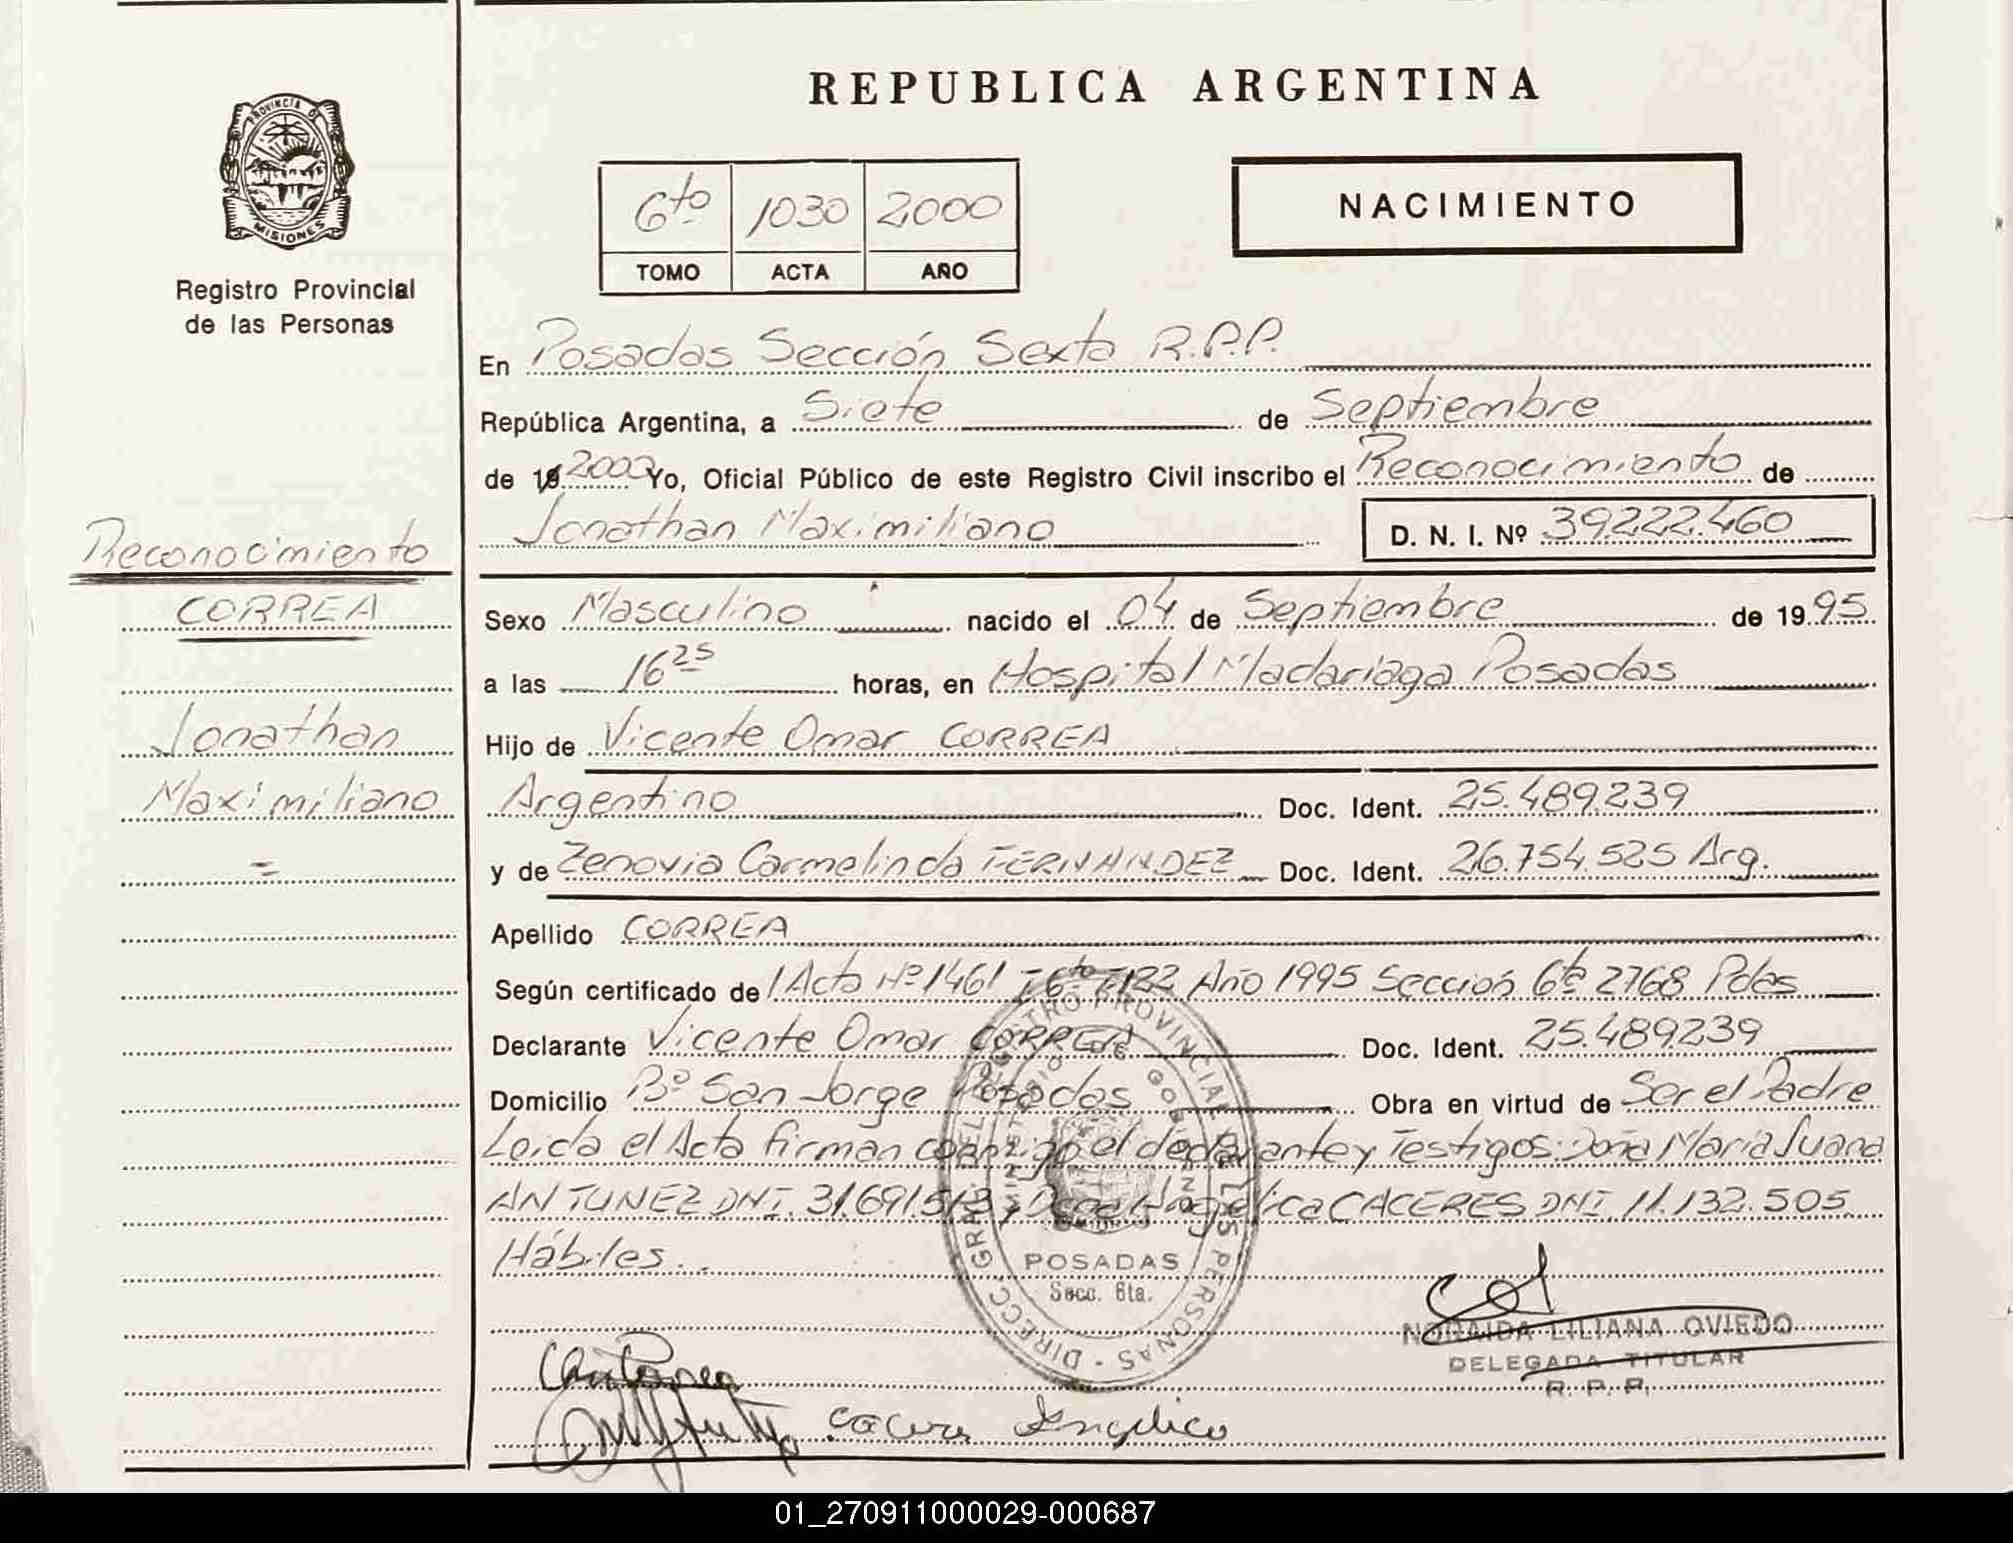 REPUBLICA ARGENTINA
PROVINCIA DE MISIONES
Registro Provincial
de las Personas
6to 1030 2000
TOMO ACTA AÑO
NACIMIENTO
En Posadas Sección Sexta R.P.P.
República Argentina, a Siete de Septiembre
de 19 2000 Yo, Oficial Público de este Registro Civil inscribo el Reconocimiento de
Jonathan Maximiliano D. N. I. Nº 39.222.460
Reconocimiento
CORREA
Jonathan
Maximiliano
Sexo Masculino nacido el 04 de Septiembre de 1995
a las 16 25 horas, en Hospital Madariaga Posadas
Hijo de Vicente Omar CORREA
Argentino Doc. Ident. 25.489.239
y de Zenovia Carmelinda FERNANDEZ Doc. Ident. 26.754.525 Arg.
Apellido CORREA
Según certificado de Acta Nº 1461 Año 1995 Sección 6ta 2768 Pdas
Declarante Vicente Omar CORREA Doc. Ident. 25.489.239
Domicilio Bº San Jorge Posadas Obra en virtud de Ser el Padre
Leida el Acta firman conmigo el declarante y Testigos: Doña María Juana
ANTUNEZ DNI. 31.691.513 y Doña Angélica CACERES DNI 11.132.505
Hábiles.
DIRECC. GRAL. DEL REGISTRO PROVINCIAL DE LAS PERSONAS
MINISTERIO DE GOB
POSADAS
Secc. 6ta.
NORAIDA LILIANA OVIEDO
DELEGADA TITULAR
R. P. P.
Angelica
01_270911000029-000687